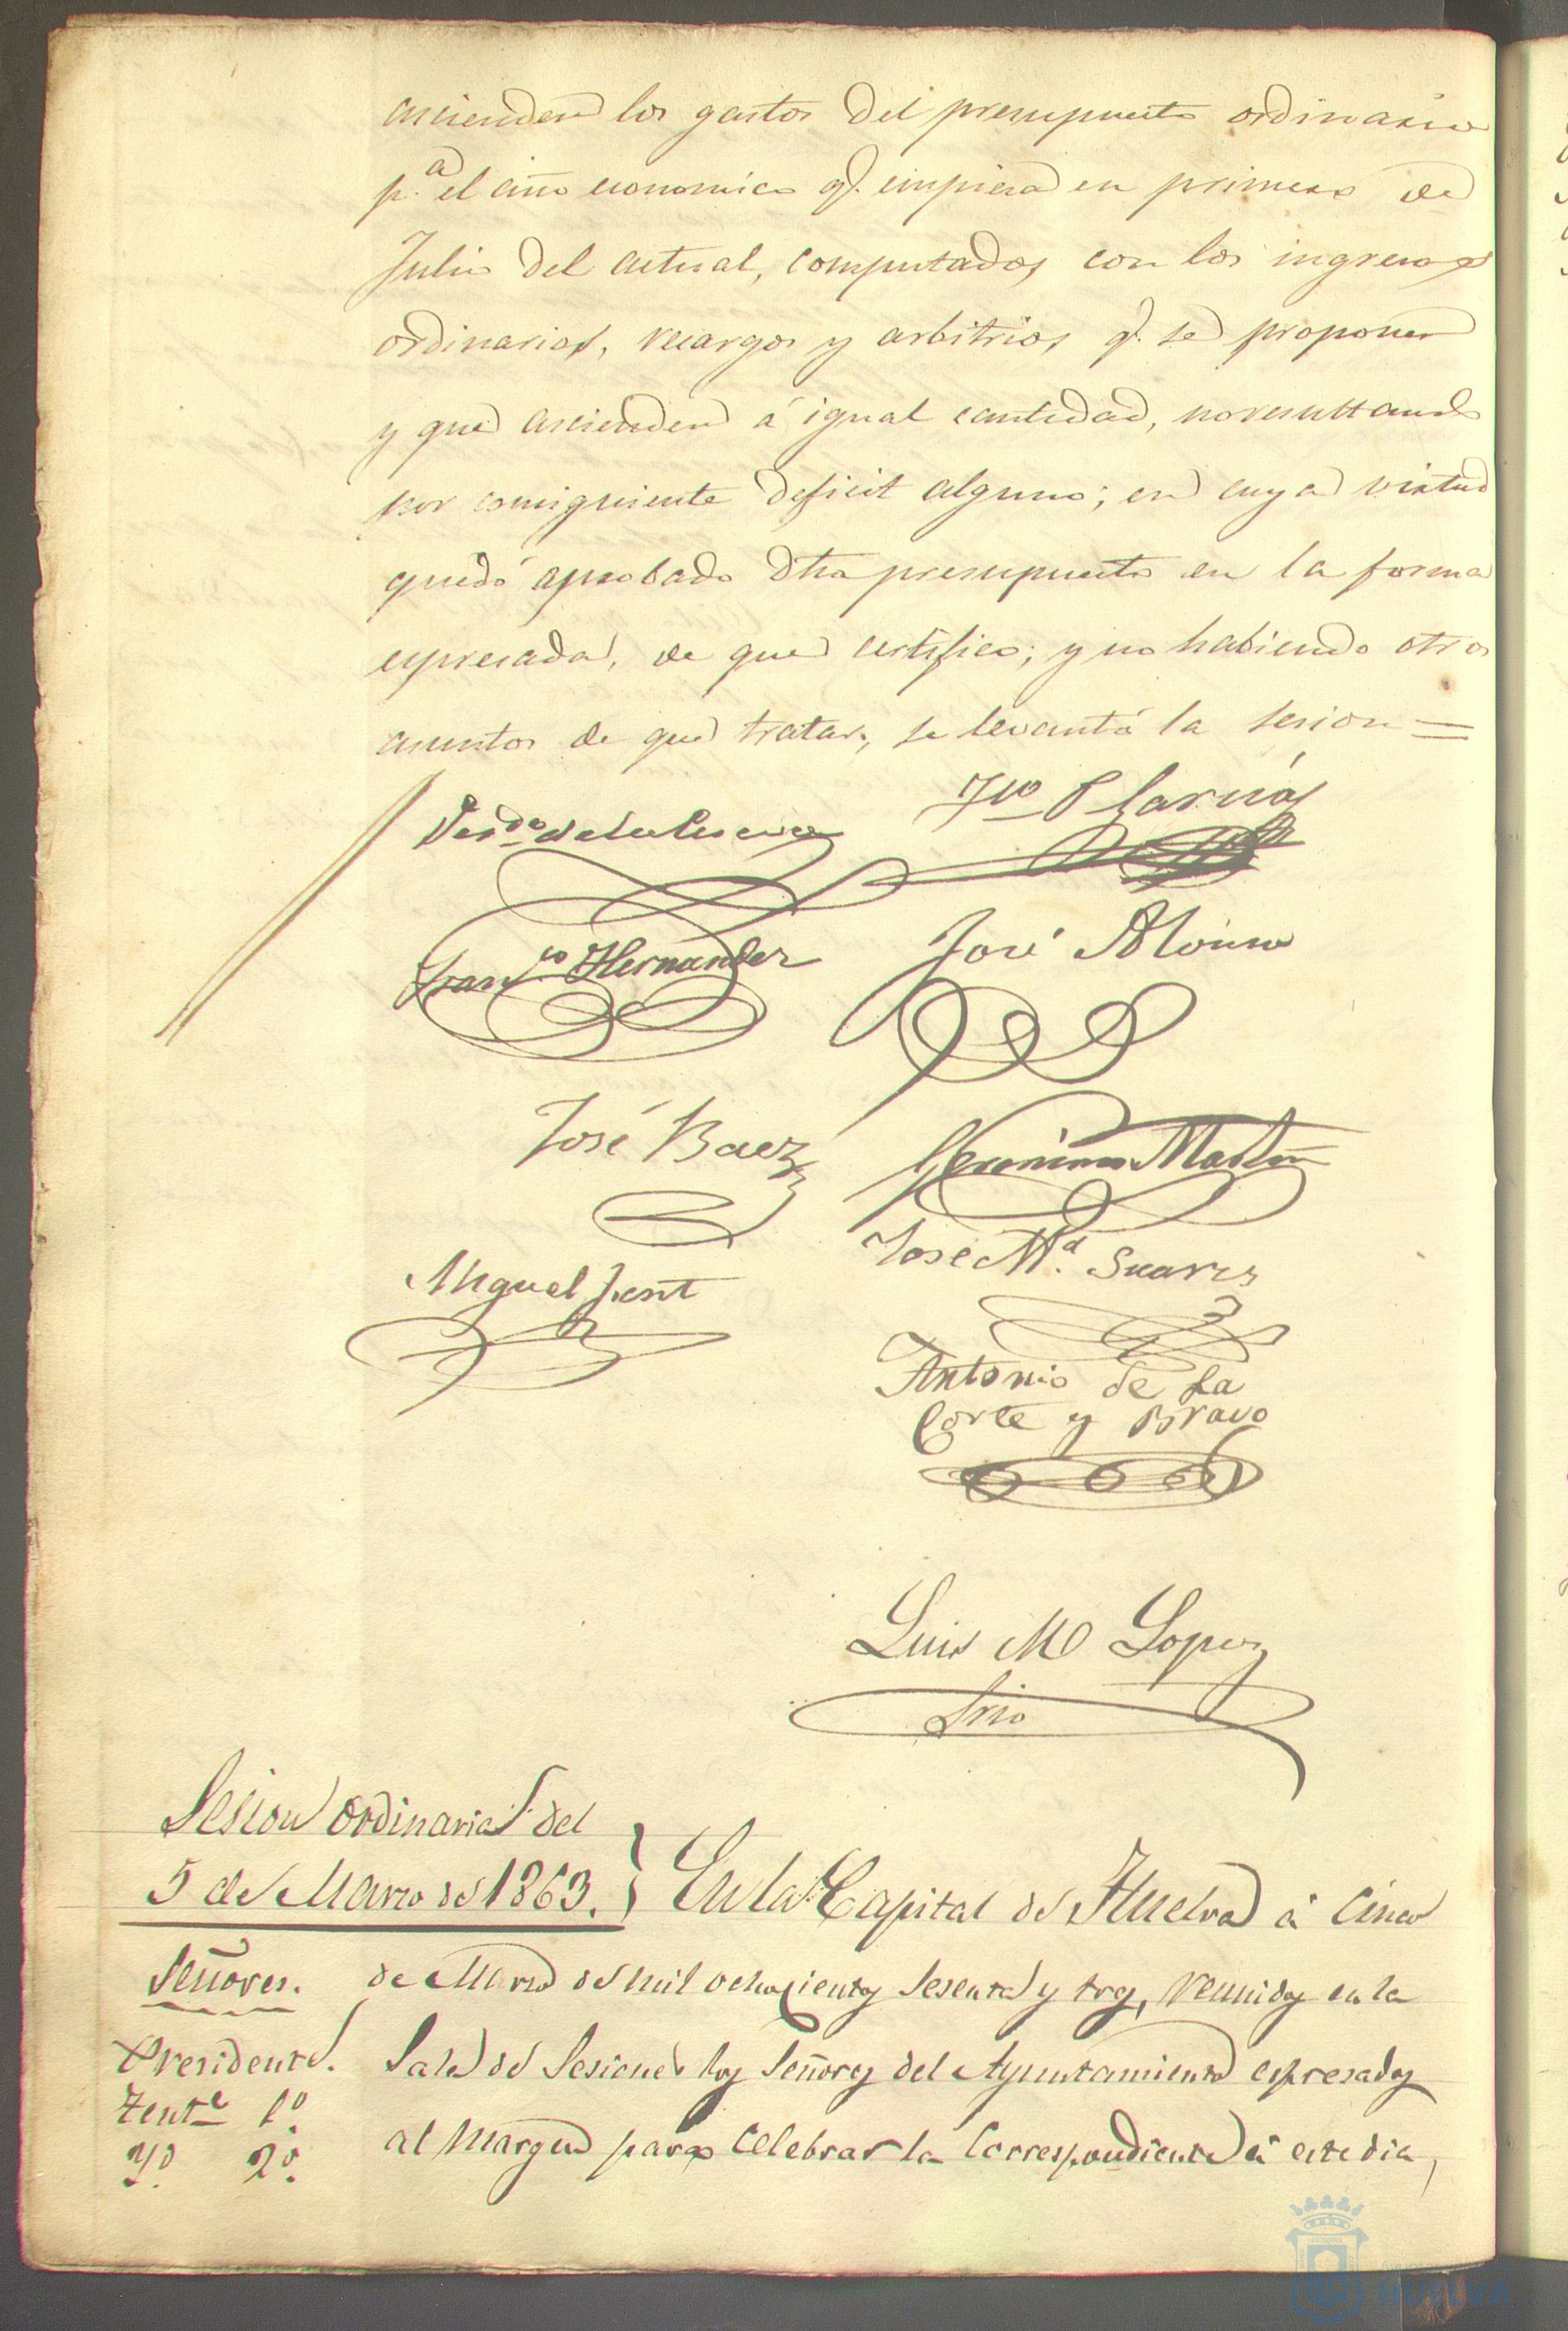 ascienden los gastos del presupuesto ordinario
p.a el año economico q.e empieza en primero de
Julio del actual, computados con los ingresos
ordinarios, recargos y arbitrios q.e se proponen
y que ascienden á igual cantidad, no resultando
por consiguiente deficit alguno; en cuya virtud
quedó aprobado dho presupuesto en la forma
espresada, de que certifico; y no habiendo otros
asuntos de que tratar, se levantó la sesion =
Fran.co Hernandez
José Alonso
José Baez
Geronimo Martin
José M.a Suarez
Miguel
Antonio de la
Corte y Bravo
Luis M Lopez
Srio
Sesion ordinaria del
5 de Marzo de 1863. } En la Capital de Huelva á cinco
Señores.
de Marzo de mil ochocientos sesenta y tres, reunidos en la
Presidente.
Sala de Sesiones los Señores del Ayuntamiento espresados
Tente 1º
al margen para celebrar la correspondiente á este dia,
Yd. 2º.
HUELVA